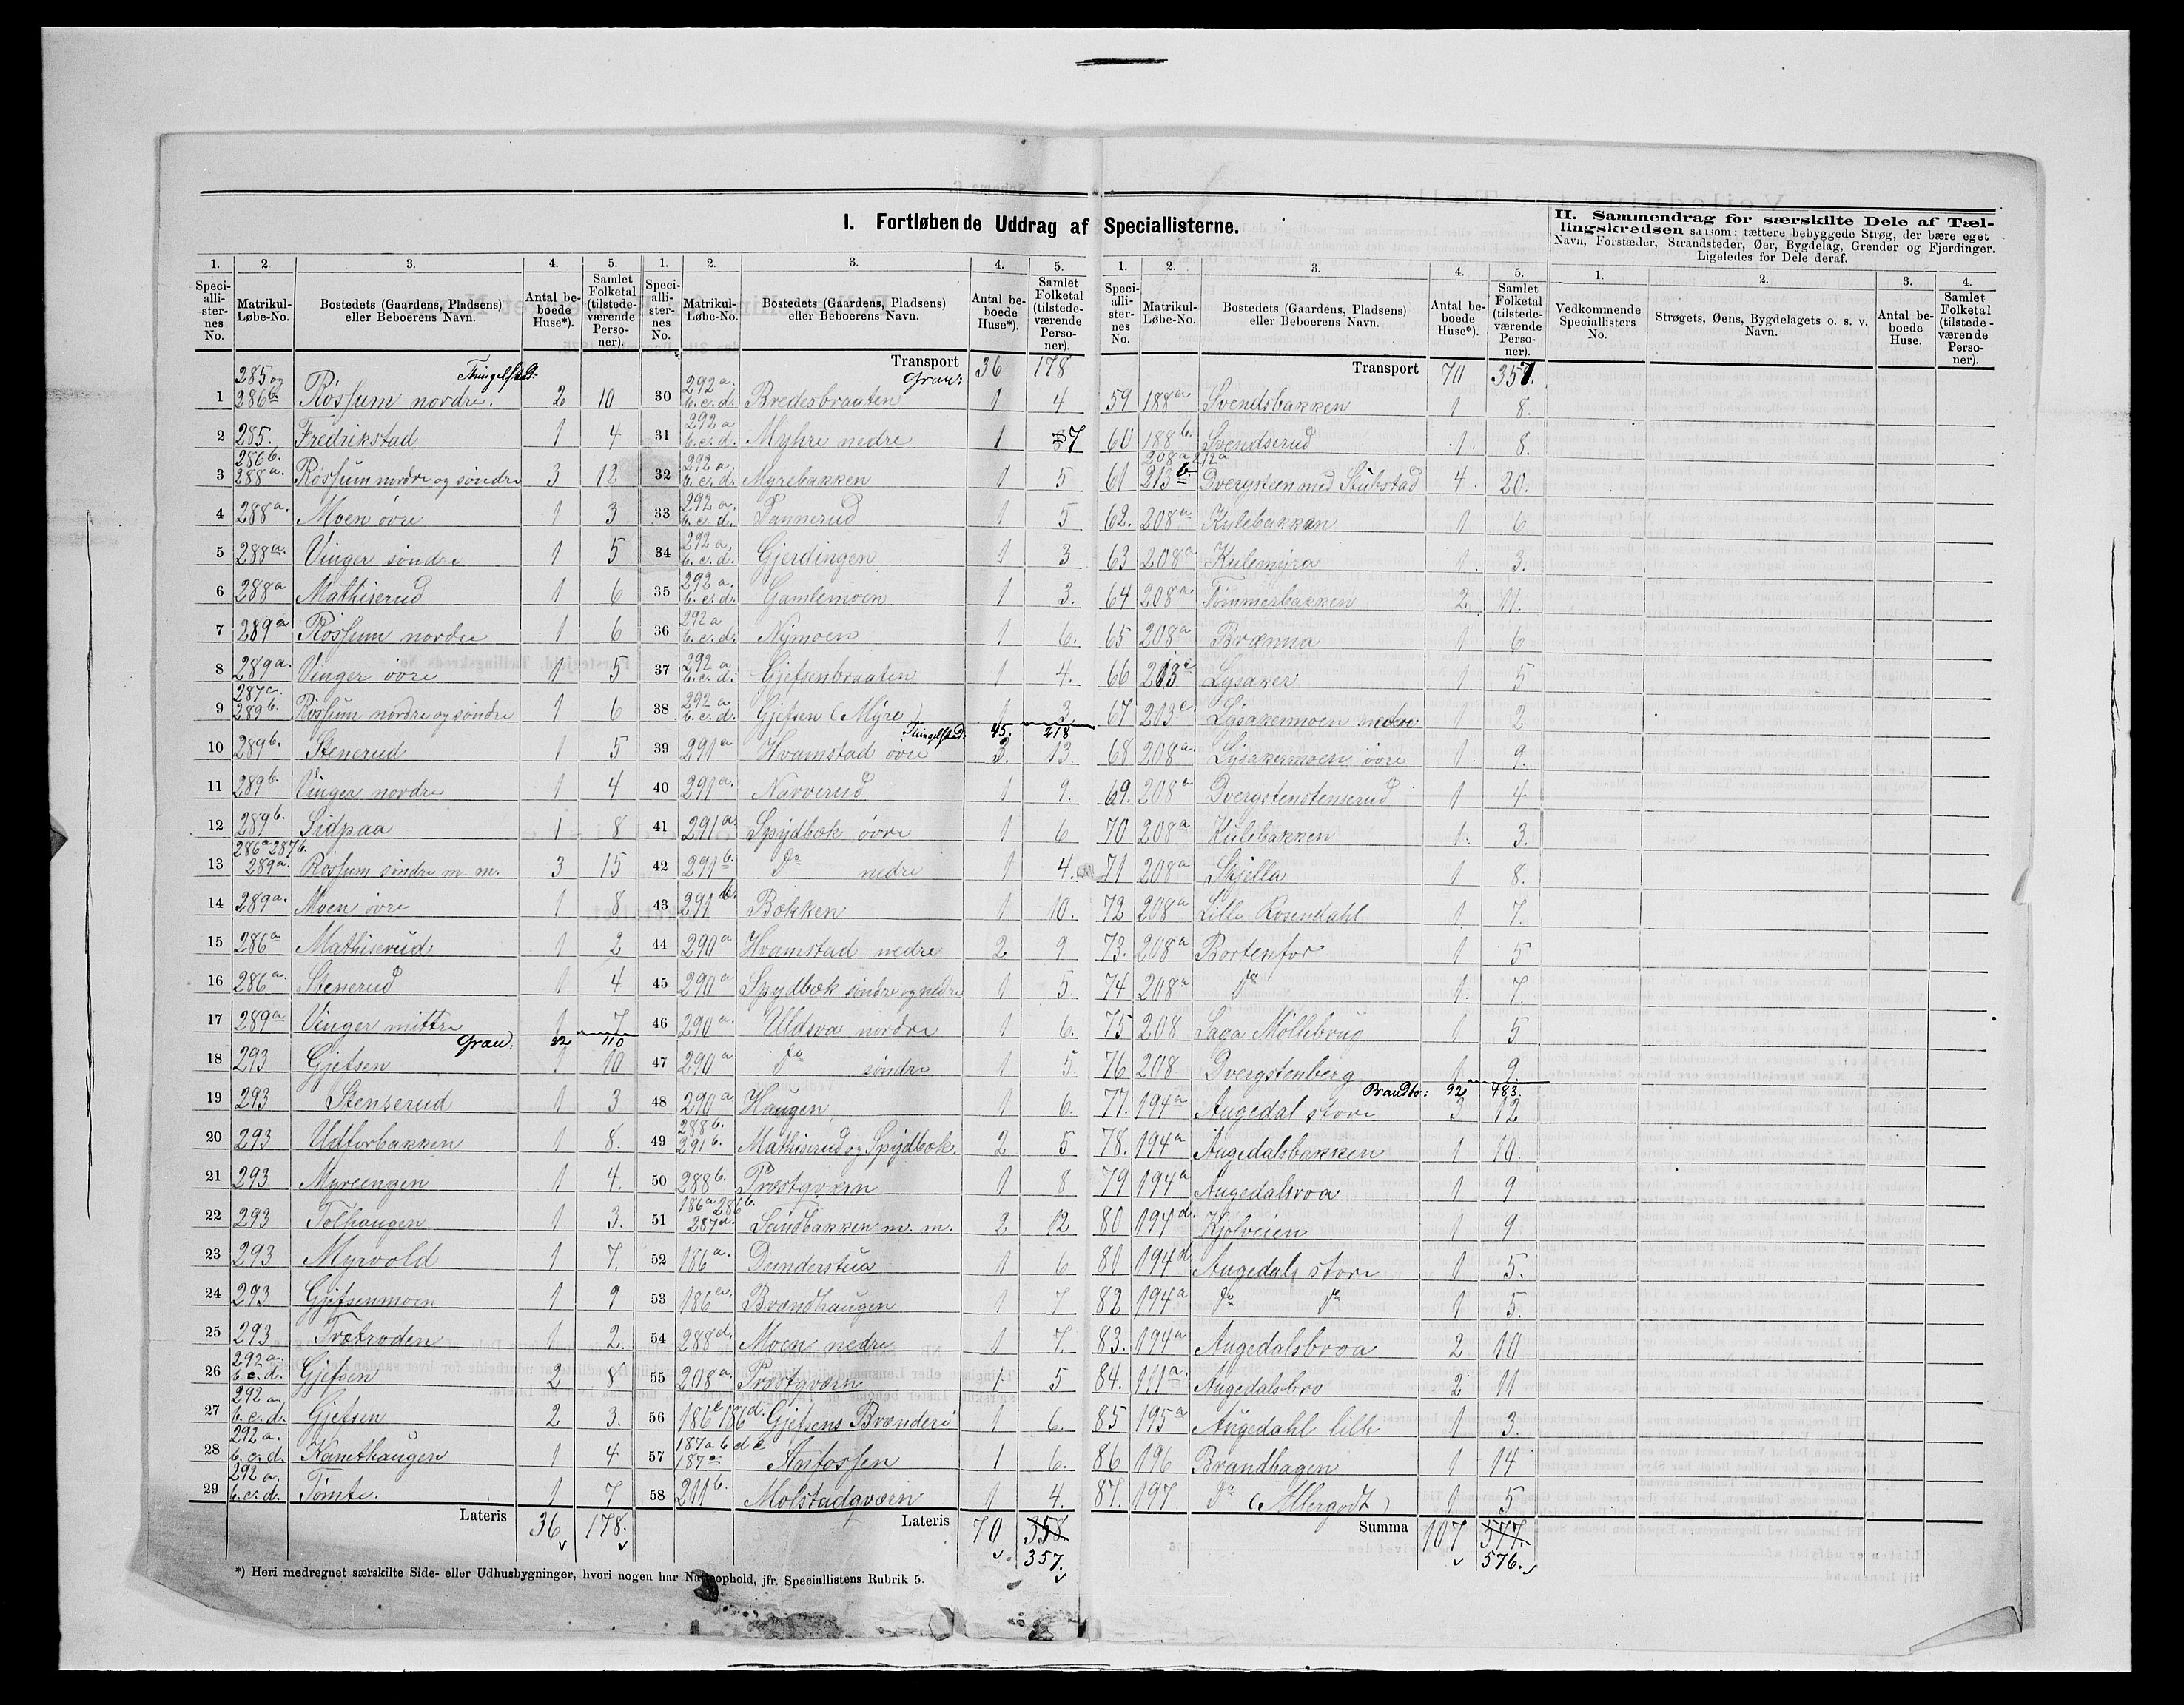 I. Fortløbende Uddrag af Speciallisterne.
II. Sammendrag for særskilte Dele af Tæl-
lingskredsen saasom: tættere bebyggede Strøg, der bære eget
Navn, Forstæder, Strandsteder, Øer, Bygdelag, Grender og Fjerdinger.
Ligeledes for Dele deraf.
1. 2. 3. 4. 5.
Speci-alli-ster-nes No. Matrikul-Løbe-No. Bostedets (Gaardens, Pladsen) eller Beboerens Navn. Antal be-boede Huse*). Samlet Folketal (tilstede-værende Perso-ner).
Thingelstad:
1 285 og 286b Røssum nordre. 2 10
2 285. Fredrikstad 1 4
3 286b. 288a. Røssum nordre og søndre 3 12
4 288a. Moen øvre 1 3
5 288a. Vinger søndre 1 5
6 288a Mathiserud 1 6
7 289a Røssum nordre 1 6
8 289a. Vinger øvre 1 5
9 287c. 289b. Røssum nordre og søndre 1 6
10 289b. Stenerud 1 5
11 289b. Vinger nordre 1 4
12 289b. Sidpaa 1 8
13 286a 287b. 289a. Røssum søndre m. m. 3 15
14 289a. Moen øvre 1 8
15 286a Mathiserud 1 2
16 286a. Stenerud 1 4
17 289a Vinger mittre 1 7
Gran: 22 110
18 293 Gjefsen 1 10
19 293 Stenserud 1 3
20 293 Udforbakken 1 8.
21 293 Myreengen 1 4.
22 293 Tolhaugen 1 3.
23 293 Myrvold 1 7.
24 293 Gjefsenmoen 1 9
25 293 Trætroden 1 2.
26 292a. b. c. d. Gjefsen 2 8.
27 292a. b. c. d. Gjefsen 2 3.
28 292a. b. c. d. Kanethaugen 1 4
29 292a. b. c. d. Tømte. 1 7
Lateris 36 178.
1. 2. 3. 4. 5.
Speci-alli-ster-nes No. Matrikul-Løbe-No. Bostedets (Gaardens, Pladsen) eller Beboerens Navn. Antal be-boede Huse*). Samlet Folketal (tilstede-værende Perso-ner).
Transport 36 178
Gran:
30 292a. b. c. d. Bredesbraaten 1 4
31 292a b. c. d. Myhre nedre 1 7
32 292a. b. c. d. Myrebakken 1 5
33 292a. b. c. d. Tannerud 1 5
34 292a b. c. d. Gjerdingen 1 3
35 292a. b. c. d. Gamlemoen 1 3.
36 292a b. c. d. Nymoen 1 6.
37 292a b. c. d. Gjefsenbraaten 1 4.
38 292a b. c. d. Gjefsen (Myre) 1 3
Thingelstad: 45. 218
39 291a Hvamstad øvre 3. 13.
40 291a. Narverud 1 9.
41 291a. Spydbøk øvre 1 6
42 291b. Do nedre 1 4.
43 291b. Bøkken 1 10.
44 290a Hvamstad nedre 2 9
45 290a Spydbøk søndre og nedre 1 5
46 290a. Uldsva nordre 1 6.
47 290a Do søndre 1 5.
48 290a Haugen 1 6.
49 288b. 291b. Mathiserud og Spydbøk. 2 5
50 288b. Præstqværn 1 8
51 186a 286b. 287d. Sandbakken m. m. 2 12
52 186a. Dunderstua 1 6
53 186 Brændhaugen 1 7
54 288d. Moen nedre 1 7.
55 208a. Prøstqværn 1 5
56 186c 186d. Gjefsens Brænderi 1 6.
57 187a b d c 187 Antossen 1 6.
58 211b. Molstadqværn 1 4.
Lateris 70 358 357.
1. 2. 3. 4. 5.
Speci-alli-ster-nes No. Matrikul-Løbe-No. Bostedets (Gaardens, Pladsen) eller Beboerens Navn. Antal be-boede Huse*). Samlet Folketal (tilstede-værende Perso-ner).
Transport 70 357.
59 188a Svendsbakken 1 8.
60 188b. Svendserud 1. 8.
61 208a 212a 213b Dvergsteen med Stubstad 4. 20.
62. 208a. Kulebakken 1 6
63 208a Kulemyra 1. 3.
64 208a. Tømmerbakken 2 11.
65 208a Brænna 1 6
66 213c Lysaker 1 5
67 213c. Lysakermoen nedre 1 2
68 208a. Lysakermoen øvre 1. 9.
69. 208a Dvergstenstenserud 1 4
70 208a Kulebakken 1. 3.
71 208a Skjella 1 8.
72 208a Lille Rosendahl 1. 7.
73. 208a Bortenfor 1 5
74 208a Do 1. 7.
75 208 Saga Møllebrug 1 5
76 208 Dvergstenberg 1 9.
Brandbo: 92 483.
77. 194a Augedal store 3 12
78. 194a Augedalsbakken 1 10.
79 194a Augedalsroa 1 9
80 194d. Kjolveien 1 9
81 194d Augedals store 1 5.
82 194a Do Do 1 5.
83. 194a. Augedalsbroa 2 10
84. 111a. Augedalsbro 2 11
85 195a Augedahl lille 1 3.
86 196 Brandhagen 1 14
87. 197 Do (Allergodt) 1 5
Summa 107 577. 576.
1. 2. 3. 4.
Vedkommende Speciallisters No. Strøgets, Øens, Bygdelagets o. s. v. Navn. Antal be-boede Huse. Samlet Folketal (tilstede-værende Perso-ner).
*) Heri medregnet særskilte Side- eller Udhusbygninger, hvori nogen har Natteophold, jfr. Speciallistens Rubrik 5.